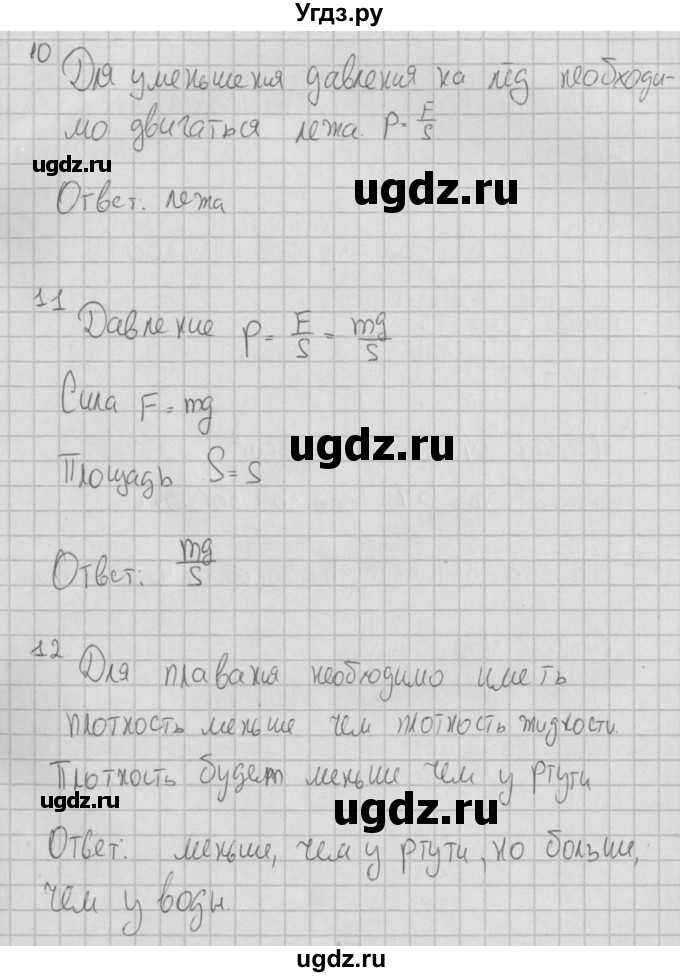 Угдз.ру
10 Для уменьшения давления на лёд необходи-
мо двигаться лежа. P=F/S
ugdz.ru
ugdz.ru
Ответ. лежа
11 Давление P = F/S = mg/S
Сила F = mg
ugdz.ru
Площадь S = s
Ответ: mg/S
12 Для плаванья необходимо иметь
плотность меньше чем плотность жидкости.
Плотность будет меньше чем у ртути
ugdz.ru
ugdz.ru
Ответ: меньше, чем у ртути, но больше,
чем у воды.
ugdz.ru